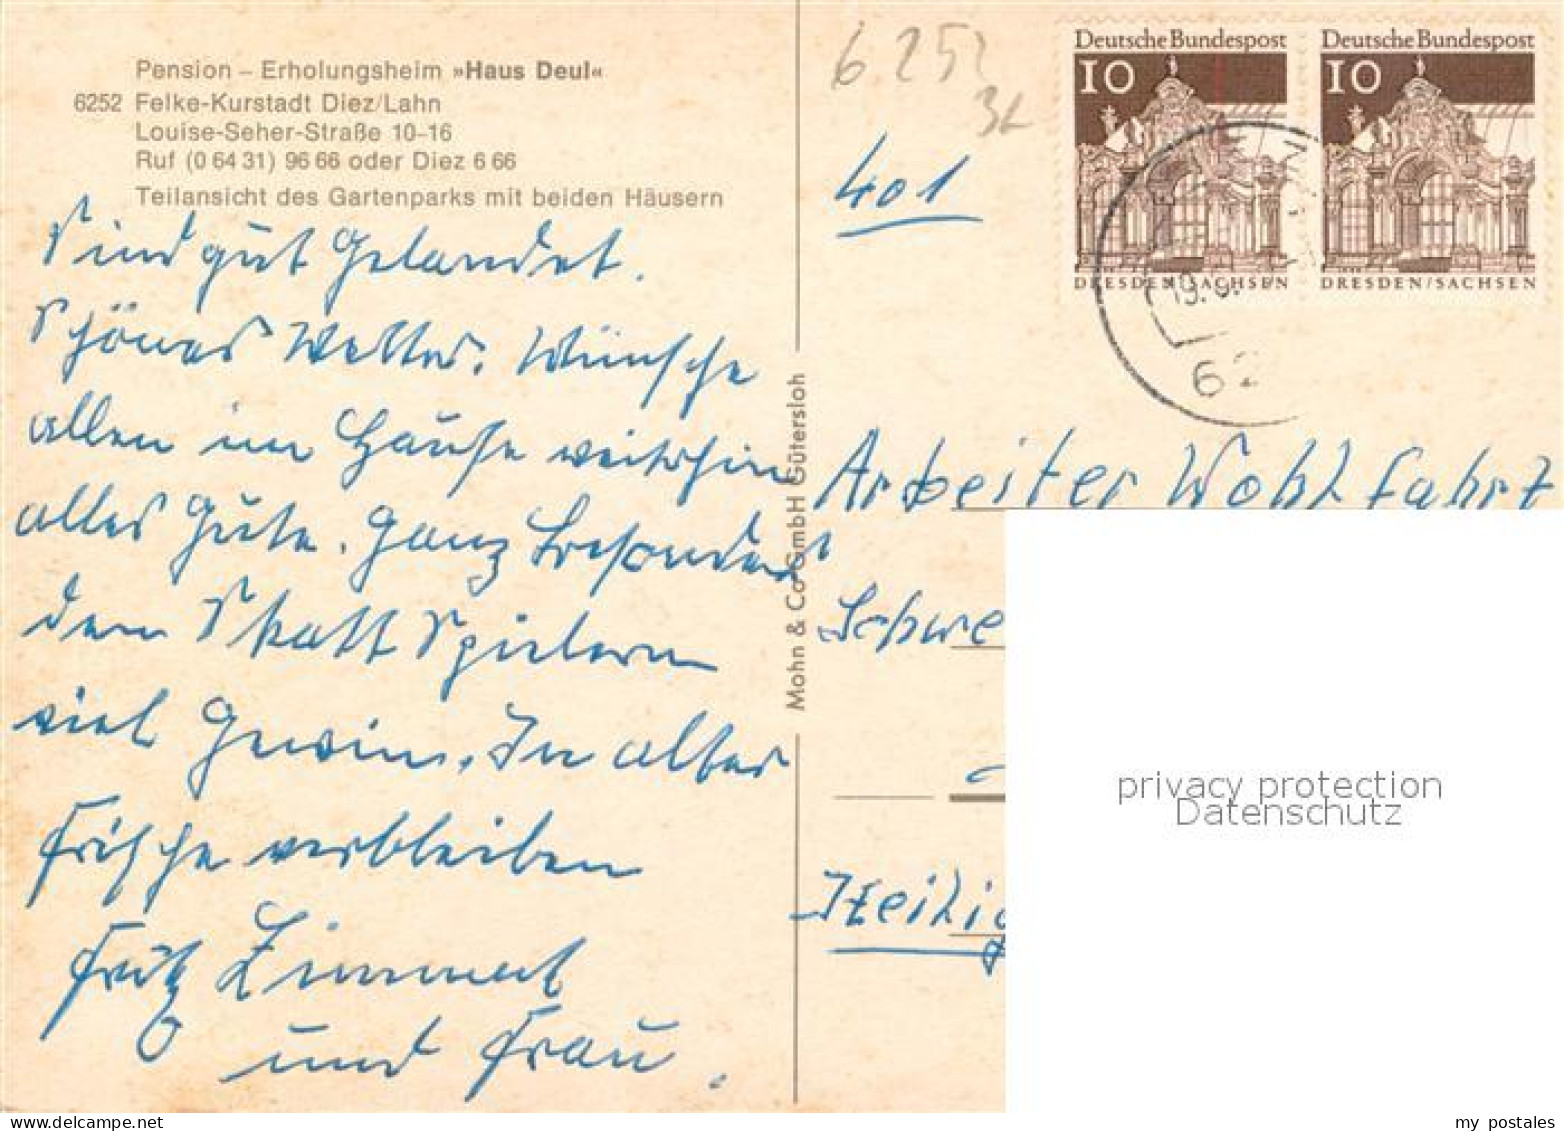 Pension – Erholungsheim »Haus Deul«
6252 Felke-Kurstadt Diez/Lahn
Louise-Seher-Straße 10-16
Ruf (0 64 31) 96 66 oder Diez 6 66
Teilansicht des Gartenparks mit beiden Häusern
Sind gut gelandet.
Schönes Wetter. Wünsche
allen im Hause weiterhin
alles Gute. Ganz besonders
den Skatt Spielern
viel Gewin. In alter
Frische verbleiben
Fritz
und Frau.
Mohn & Co GmbH Gütersloh
6252
401
Deutsche Bundespost
10
DRESDEN/SACHSEN
Deutsche Bundespost
10
DRESDEN/SACHSEN
62
Arbeiter Wohlfahrt
Schwe
Heilig
privacy protection
Datenschutz
my postales